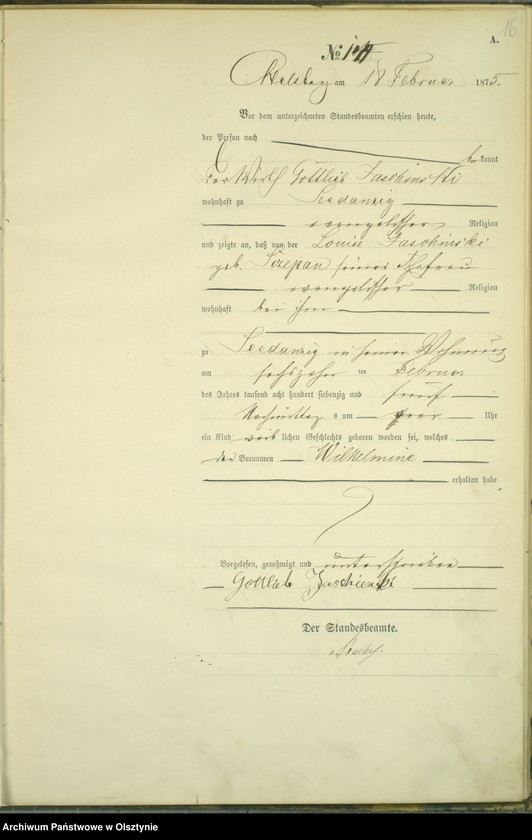 16
A.
No 14
am 18 Februar 1875.
Vor dem unterzeichneten Standesbeamten erschien heute,
der Person nach
kannt
der Wirth Gottlieb Jaschinski
wohnhaft zu Seedanzig
evangelischer Religion
und zeigte an, daß von der Louise Jaschinski
geb. Sczepan seiner Ehefrau
evangelischer Religion
wohnhaft bei ihm
zu Seedanzig in seiner Wohnung
am sechszehn ten Februar
des Jahres tausend acht hundert siebenzig und fünf
Nachmittags um Uhr
ein Kind weib lichen Geschlechts geboren worden sei, welches
den Vornamen Wilhelmine
erhalten habe
Vorgelesen, genehmigt und unterschrieben
Gottlieb Jaschienski
Der Standesbeamte.
Archiwum Państwowe w Olsztynie